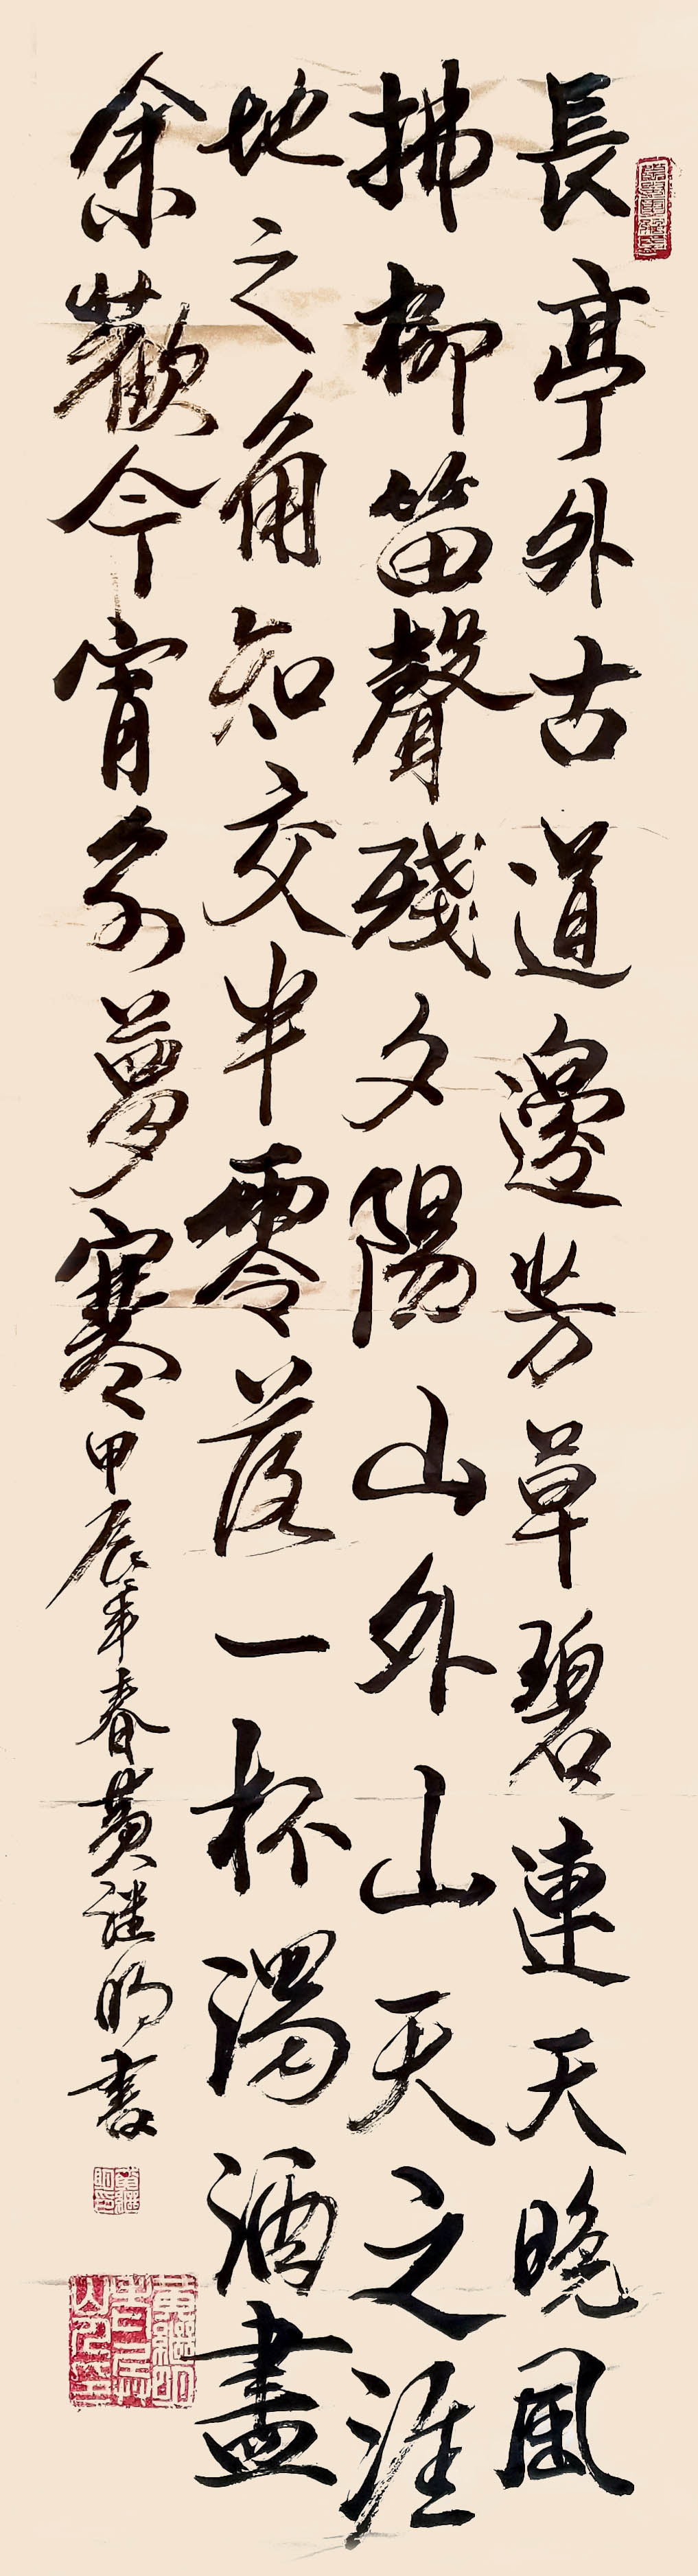 長亭外古道邊芳草碧連天晚風
拂柳笛聲殘夕陽山外山天之涯
地之角知交半零落一杯濁酒盡
余歡今宵別夢寒
甲辰年春黃繼明書